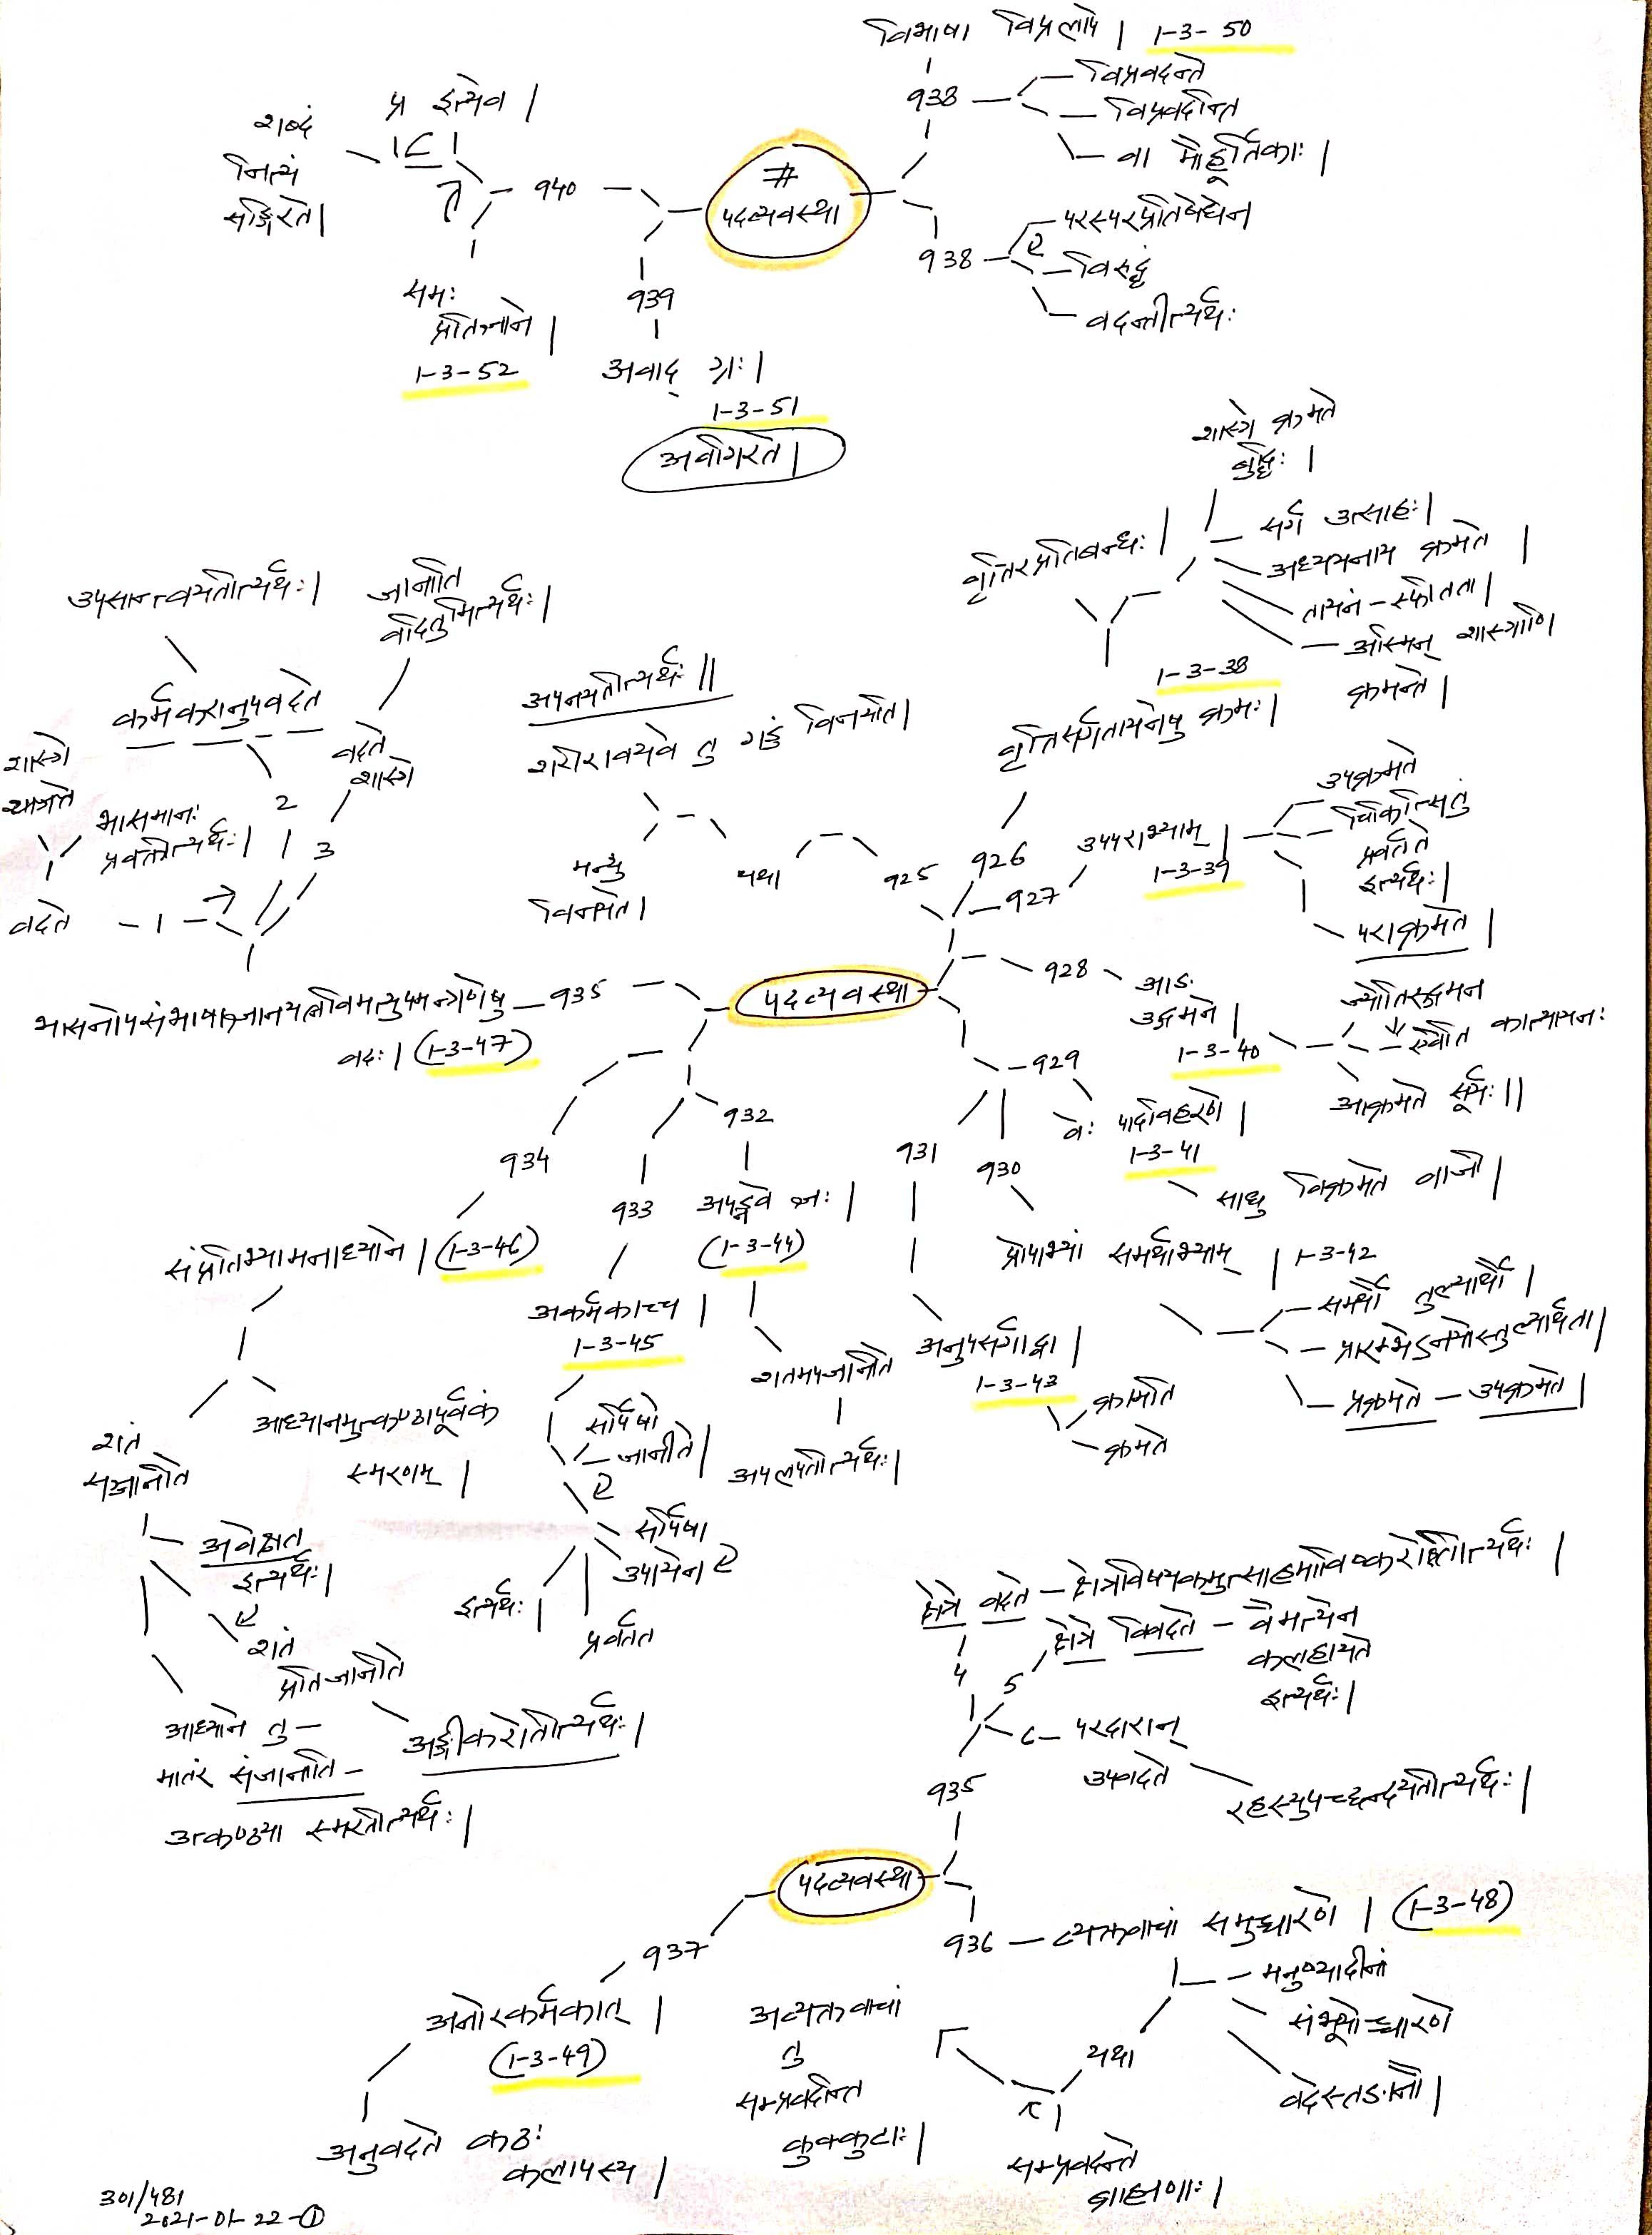 विभाषा विप्रलापे | 1-3-50
938
विप्रवदन्ते
विप्रवदन्ति
वा मौहूर्तिकाः |
#
पदव्यवस्था
938
परस्परप्रतिषेधेन
विरुद्धं
वदन्तीत्यर्थः
940
प्र इत्येव |
शब्दं
नित्यं
सङ्गिरते |
समः
प्रतिज्ञाने |
1-3-52
939
अवाद् ग्रः |
1-3-51
अवगिरते |
शास्त्रे क्रमते
बुद्धिः |
वृत्तिरप्रतिबन्धः |
सर्ग उत्साहः |
अध्ययनाय क्रमते |
तायनं - स्फीतता |
अस्मिन् शास्त्राणि
क्रमन्ते |
1-3-38
वृत्तिसर्गतायनेषु क्रमः |
926
उपसान्त्वयतीत्यर्थः |
जानाति
वदितुमित्यर्थः |
कर्मकरानुपवदते
शास्त्रे
भासमानः
प्रवक्तीत्यर्थः |
वदते
शास्त्रे
2
3
वदते - 1
अपनयतीत्यर्थः ||
शरीरावयवे तु गडुं विनयति |
मन्युं
विनयते |
यथा
925
927
उपपराभ्याम् |
1-3-39
उपक्रमते
चिकित्सितुं
प्रवर्तते
इत्यर्थः |
पराक्रमते |
पदव्यवस्था
928
आङः
उद्गमने |
1-3-40
ज्योतिरुद्गमन
इति कात्यायनः
आक्रमते सूर्यः ||
935
भासनोपसंभाषाज्ञानयत्नविमत्युपमन्त्रणेषु
वदः | (1-3-47)
929
वेः पादविहरणे |
1-3-41
साधु विक्रमते वाजी |
930
प्रोपाभ्यां समर्थाभ्याम् | 1-3-42
समर्थौ तुल्यार्थौ |
प्रारम्भेऽनयोस्तुल्यार्थता |
प्रक्रमते - उपक्रमते |
931
अनुपसर्गाद्वा |
1-3-43
क्रामति
क्रमते
932
अपह्नवे ज्ञः |
(1-3-44)
शतमपजानीते
अपलपतीत्यर्थः |
933
अकर्मकाच्च |
1-3-45
सर्पिषो
जानीते |
सर्पिषा
उपायेन
प्रवर्तते
इत्यर्थः |
934
संप्रतिभ्यामनाध्याने | (1-3-46)
आध्यानमुत्कण्ठापूर्वकं
स्मरणम् |
शतं
सञ्जानीते
अवेक्षत
इत्यर्थः |
शतं
प्रतिजानीते
अङ्गीकरोतीत्यर्थः |
आध्याने तु -
मातरं संजानाति -
उत्कण्ठया स्मरतीत्यर्थः |
क्षेत्रे वदते - क्षेत्रविषयकमुत्साहमाविष्करोतीत्यर्थः |
क्षेत्रे विवदते - वैमत्येन
कलहायते
इत्यर्थः |
4
5
6 - परदारान्
उपवदते
रहस्युपच्छन्दयतीत्यर्थः |
935
पदव्यवस्था
936 - व्यक्तवाचां समुच्चारणे | (1-3-48)
मनुष्यादीनां
संभूयोच्चारणे
वदेस्तङानौ |
यथा
सम्प्रवदन्ते
ब्राह्मणाः |
अव्यक्तवाचां
तु
सम्प्रवदन्ति
कुक्कुटाः |
937
अनोरकर्मकात् |
(1-3-49)
अनुवदते कठः
कलापस्य |
301/481
2021-01-22-①